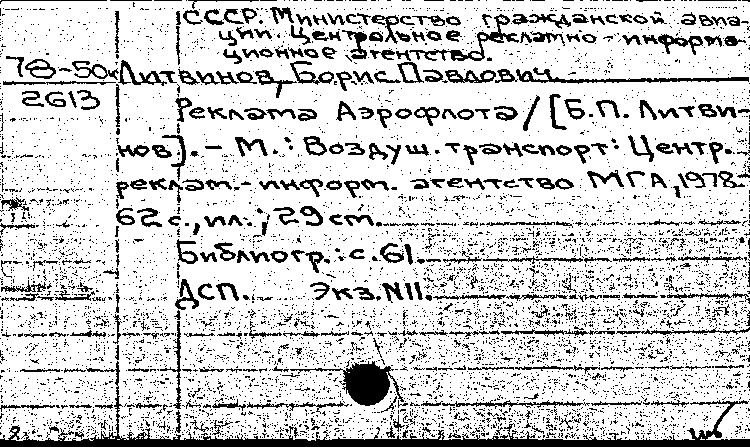 СССР. Министерство гражданской авиа-
ции. Центральное рекламно-информа-
ционное агентство.
78-50к Литвинов, Борис Павлович
2613
Реклама Аэрофлота / [Б.П. Литви-
нов]. – М.: Воздуш. транспорт: Центр.
реклам.-информ. агентство МГА, 1978.-
62 с., ил.; 29 см.
Библиогр.: с. 61.
ДСП. Экз. N11.